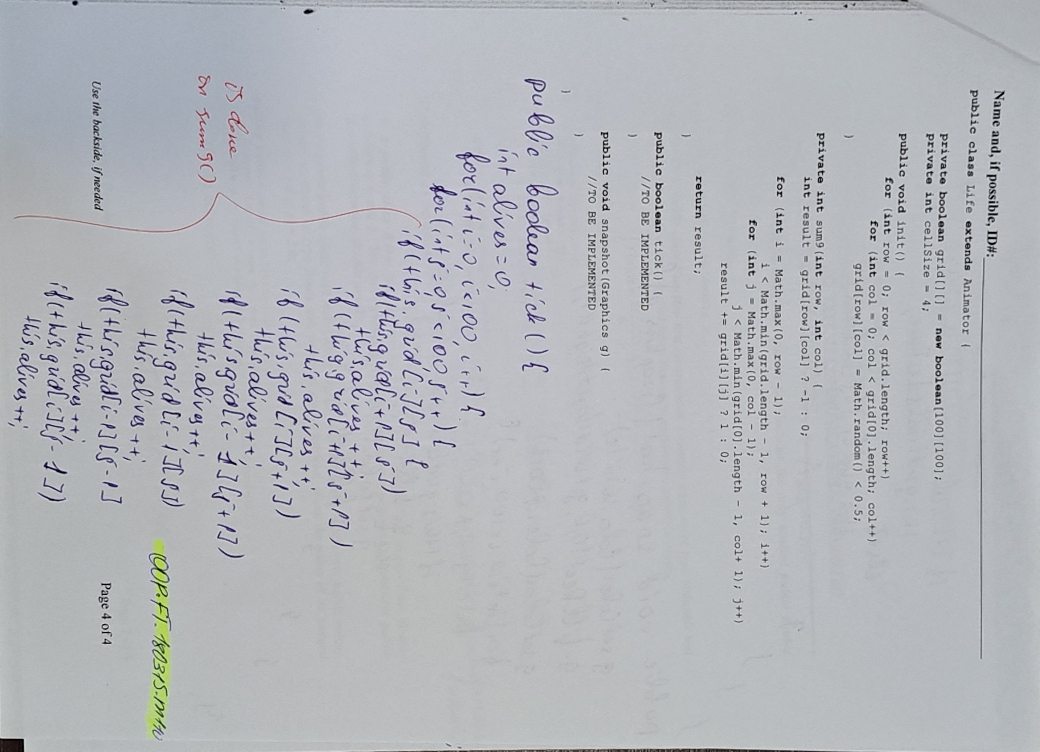 Name and, if possible, ID#:
public class Life extends Animator {
private boolean grid[][] = new boolean[100][100];
private int cellSize = 4;
public void init() {
for (int row = 0; row < grid.length; row++)
for (int col = 0; col < grid[0].length; col++)
grid[row][col] = Math.random() < 0.5;
}
private int sum9(int row, int col) {
int result = grid[row][col] ? -1 : 0;
for (int i = Math.max(0, row - 1);
i < Math.min(grid.length - 1, row + 1); i++)
for (int j = Math.max(0, col - 1);
j < Math.min(grid[0].length - 1, col+ 1); j++)
result += grid[i][j] ? 1 : 0;
return result;
}
public boolean tick() {
//TO BE IMPLEMENTED
}
public void snapshot(Graphics g) {
//TO BE IMPLEMENTED
}
}
public boolean tick(){
int alives=0;
for(int i=0, i<100, i++) {
for(int j=0, j<100, j++) {
if(this.grid[i][j] {
if(this.grid[i+1][j])
this.alives ++;
if(this.grid[i+1][j+1])
this.alives ++;
if(this.grid[i][j+1])
this.alives++;
if(this.grid[i-1][j+1])
this.alives ++;
if(this.grid[i-1][j])
this.alives ++;
if(this.grid[i-1][j-1]
this.alives ++;
if(this.grid[i][j-1])
this.alives ++;
is done
on sum9()
OOP.FT.180315.M110
Use the backside, if needed
Page 4 of 4